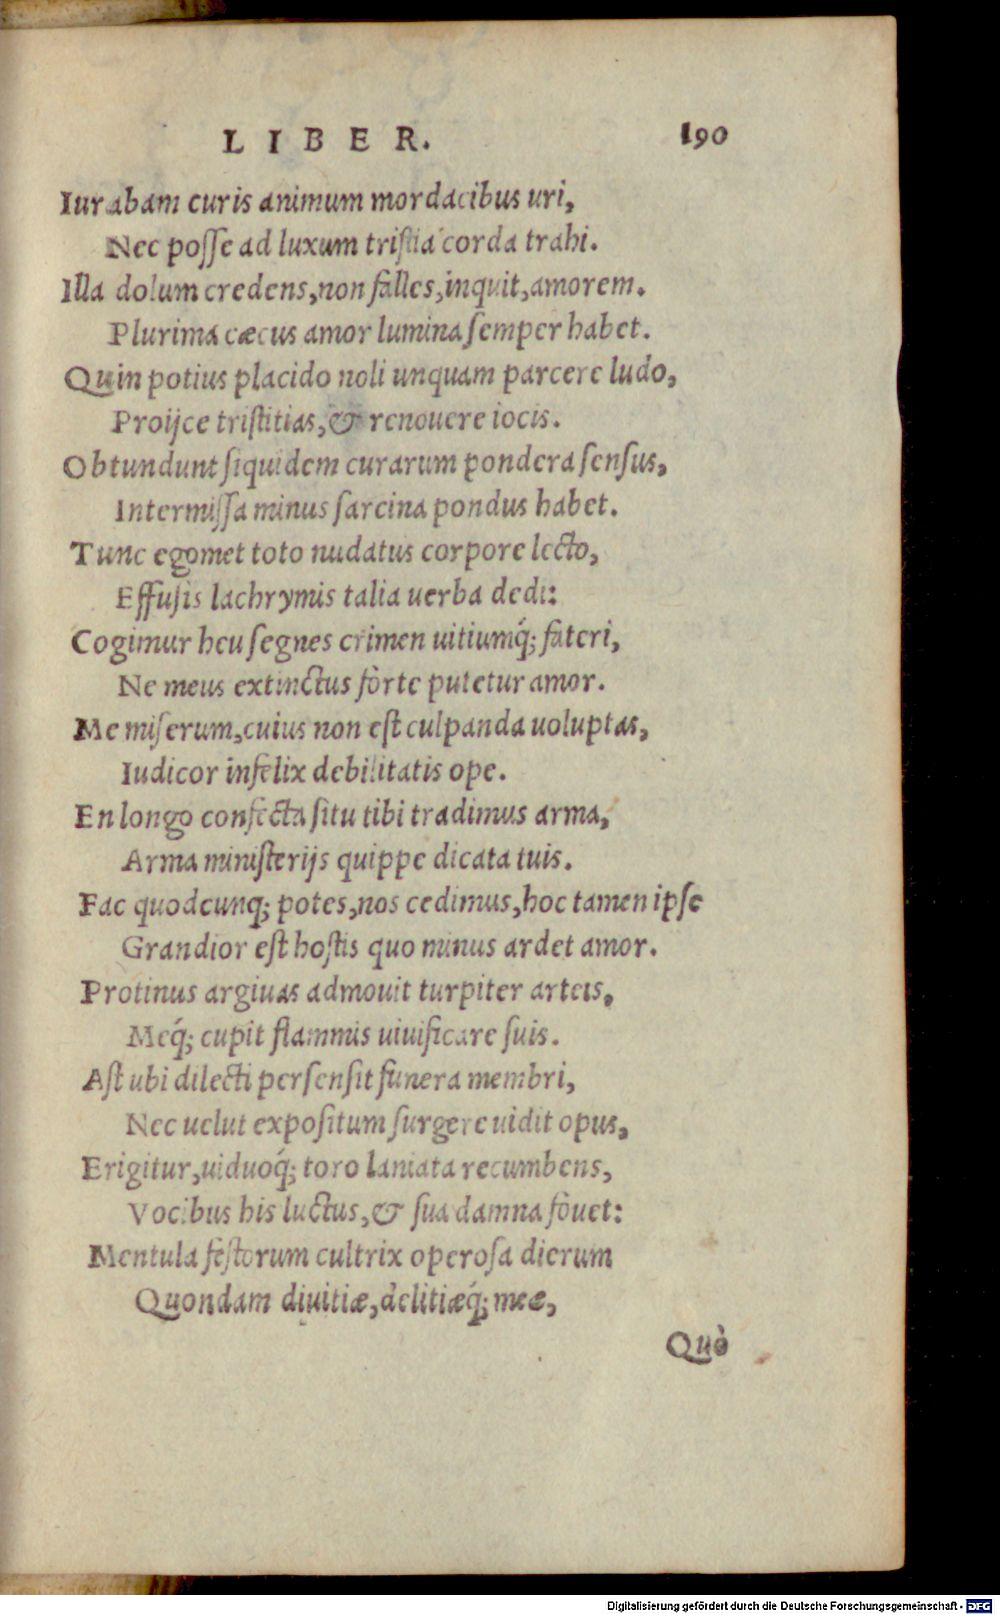 LIBER. 190
Iurabam curis animum mordacibus uri,
Nec posse ad luxum tristia corda trahi.
Illa dolum credens, non falles, inquit, amorem.
Plurima cæcus amor lumina semper habet.
Quin potius placido noli unquam parcere ludo,
Proijce tristitias, & renouere iocis.
Obtundunt siquidem curarum pondera sensus,
Intermissa minus sarcina pondus habet.
Tunc egomet toto nudatus corpore lecto,
Effusis lachrymis talia uerba dedi:
Cogimur heu segnes crimen uitiumq́; fateri,
Ne meus extinctus fòrte putetur amor.
Me miserum, cuius non est culpanda uoluptas,
Iudicor infelix debilitatis ope.
En longo confecta situ tibi tradimus arma,
Arma ministerijs quippe dicata tuis.
Fac quodcunq; potes, nos cedimus, hoc tamen ipse
Grandior est hostis quo minus ardet amor.
Protinus argiuas admouit turpiter arteis,
Meq́; cupit flammis uiuificare suis.
Ast ubi dilecti persensit funera membri,
Nec uelut expositum surgere uidit opus,
Erigitur, uiduoq́; toro laniata recumbens,
Vocibus his luctus, & sua damna fòuet:
Mentula festorum cultrix operosa dierum
Quondam diuitiæ, delitiæq́; meæ,
Quò
Digitalisierung gefördert durch die Deutsche Forschungsgemeinschaft - DFG